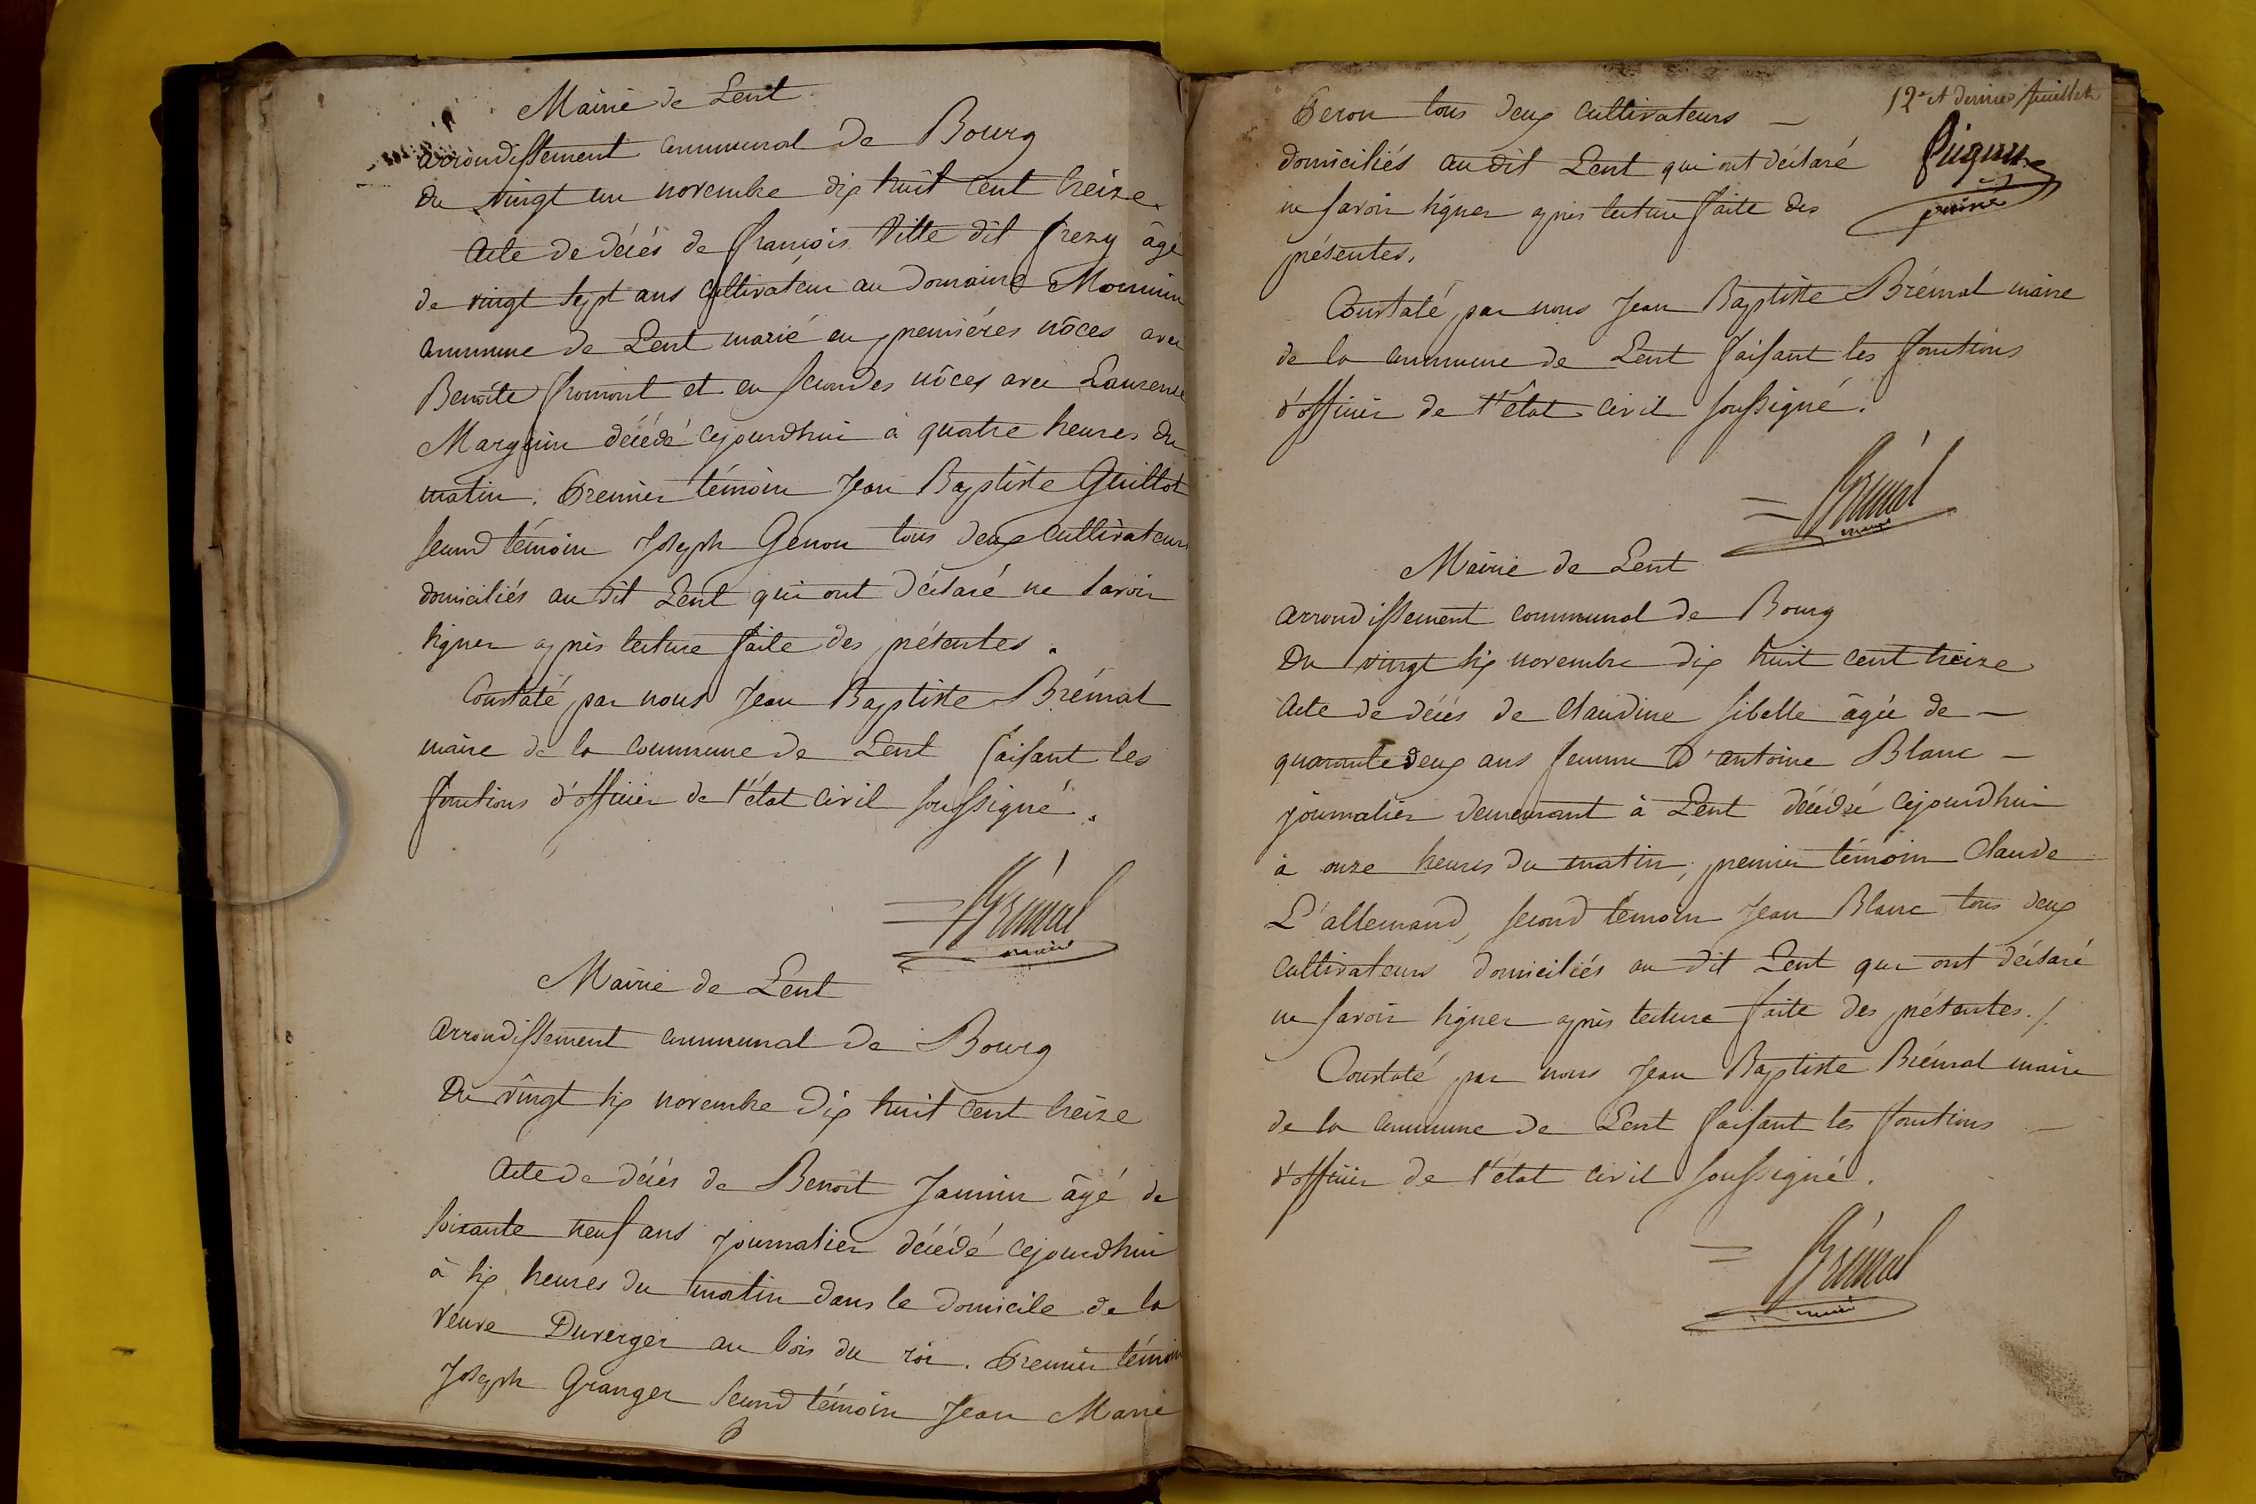 Mairie de Lent
arrondissement communal de Bourg
Du vingt un novembre dix huit cent treize.
Acte de décés de françois Ville dit frezy âgé
de vingt sept ans cultivateur au domaine Monnin
commune de Lent marié en premiéres nôces avec
Benoite fromont et en secondes nôces avec Laurence
Marguin décédé cejourdhui à quatre heures du
matin. Premier témoin Jean Baptiste Guillot
second témoin Joseph Genou tous deux cultivateurs
domiciliés au dit Lent qui ont déclaré ne savoir
signer aprés lecture faite des présentes.
Constaté par nous Jean Baptiste Brémal
maire de la commune de Lent faisant les
fonctions d'officier de l'état civil soussigné.
Brémal
maire
Mairie de Lent
arrondissement communal de Bourg
Du vingt six novembre dix huit cent treize
Acte de décés de Benoit Jannin âgé de
soixante neuf ans journalier décédé cejourdhui
à six heures du matin dans le domicile de la
veuve Duverger au bois du roi. Premier témoin
Joseph Granger second témoin Jean Marie
12e et dernier feuillet
Peron tous deux cultivateurs —
domiciliés au dit Lent qui ont déclaré
ne savoir signer aprés lecture faite des
présentes.
Constaté par nous Jean Baptiste Brémal maire
de la commune de Lent faisant les fonctions
d'officier de l'état civil soussigné.
Brémal
maire
Mairie de Lent
arrondissement communal de Bourg
Du vingt six novembre dix huit cent treize
Acte de décés de Claudine sibelle âgée de —
quarante deux ans femme d'antoine Blanc —
journalier demeurant à Lent décédé cejourdhui
à onze heures du matin, premier témoin Claude
L'allemand, second témoin Jean Blanc tous deux
cultivateurs domiciliés au dit Lent qui ont déclaré
ne savoir signer aprés lecture faite des présentes./.
Constaté par nous Jean Baptiste Brémal maire
de la commune de Lent faisant les fonctions —
d'officier de l'état civil soussigné.
Brémal
maire